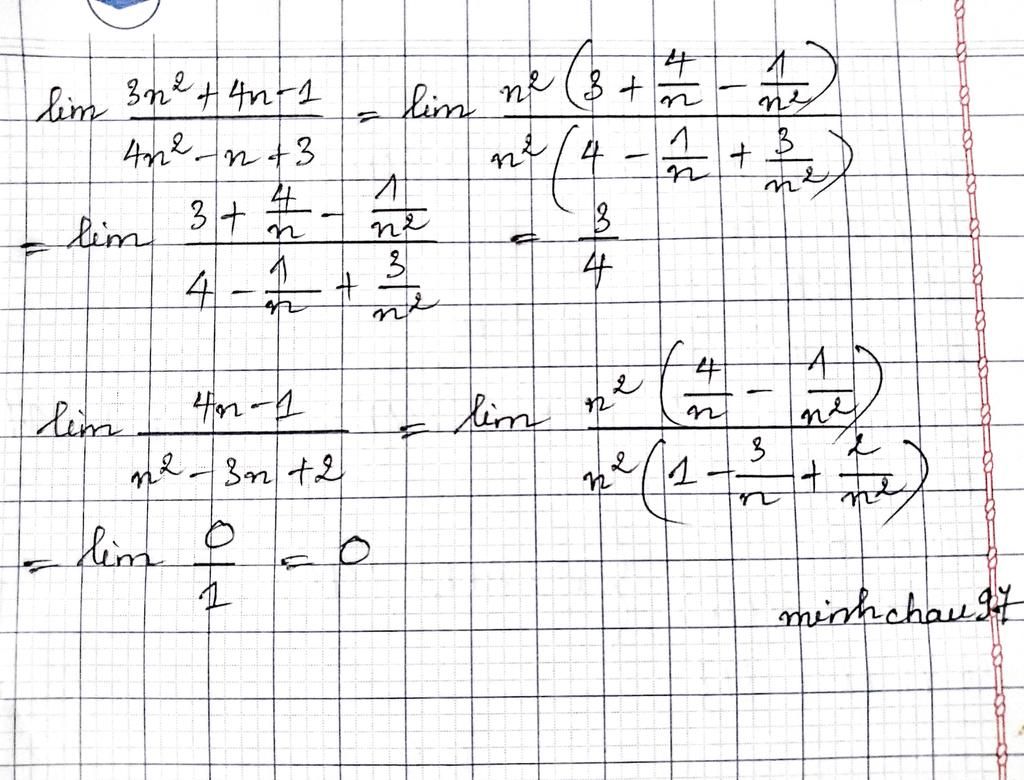 lim (3n² + 4n - 1)/(4n² - n + 3) = lim (n²(3 + 4/n - 1/n²))/(n²(4 - 1/n + 3/n²))
= lim (3 + 4/n - 1/n²)/(4 - 1/n + 3/n²) = 3/4
lim (4n - 1)/(n² - 3n + 2) = lim (n²(4/n - 1/n²))/(n²(1 - 3/n + 2/n²))
= lim 0/1 = 0
minhchau97